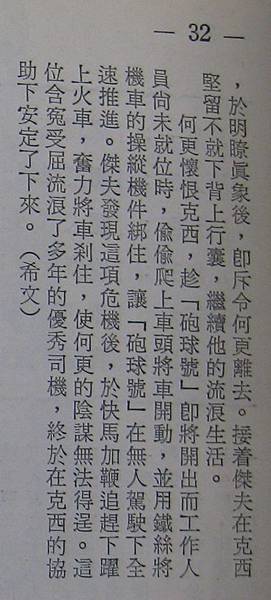 — 32 —
，於明瞭眞象後，卽斥令何更離去。接着傑夫在克西
堅留不就下背上行囊，繼續他的流淚生活。
何更懷恨克西，趁「砲球號」卽將開出而工作人
員尚未就位時，偷偷爬上車頭將車開動，並用鐵絲將
機車的操縱機件綁住，讓「砲球號」在無人駕駛下全
速推進。傑夫發現這項危機後，於快馬加鞭追趕下躍
上火車，奮力將車刹住，使何更的陰謀無法得逞。這
位含寃受屈流淚了多年的優秀司機，終於在克西的協
助下安定了下來。（希文）